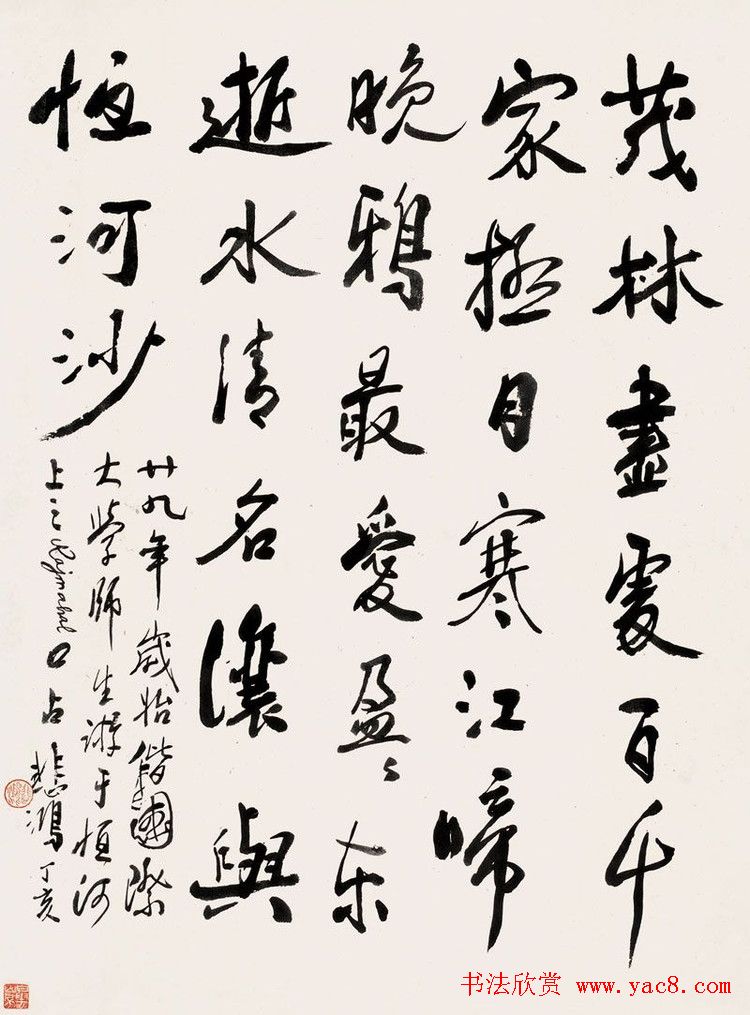 茂林盡處百千
家極目寒江啼
晚鴉最愛盈〻东
逝水清名讓與
恒河沙
廿九年歲始偕國際
大學師生游于恒河
上之Rajmahal口占悲鴻丁亥
书法欣赏 www.yac8.com